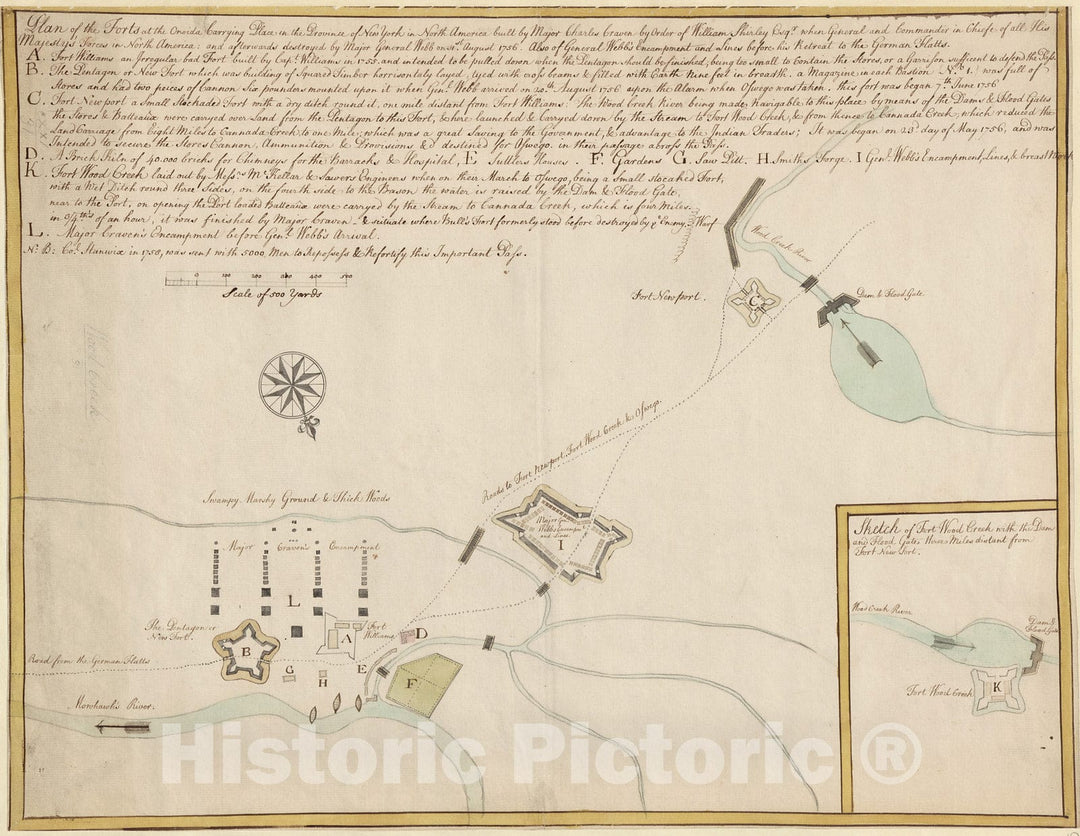 Plan of the Forts at the Oneida Carrying Place in the Province of New York in North America built by Major Charles Craven by Order of William Shirley Esqr. when General and Commander in Chiefe of all His
Majestys Forces in North America: and afterwards destroyed by Major General Webb on August 1756. Also of General Webb's Encampment and Lines before his Retreat to the German Flatts.
A. Fort Williams an Irregular bad Fort built by Capt. Williams in 1755 and intended to be pulled down when the Pentagon should be finished, being too small to Contain the Stores, or a Garrison sufficient to defend the Pass.
B. The Pentagon or New Fort which was building of Squared Timber horrisontaly layed, tyed with cross beams & filled with Earth Nine feet in breadth. a Magazine in each Bastion No. 1. was full of
Stores and had two pieces of Cannon Six pounders mounted upon it when Genl. Webb arrived on 20th. August 1756 upon the Alarm when Oswego was taken. this fort was began 7th. June 1756
C. Fort Newport a Small Stockaded Fort with a dry ditch round it, one mile distant from Fort Williams. The Wood Creek River being made Navigable to this place by means of the Dams & Flood Gates
the Stores & Batteauix were carryed over Land from the Pentagon to this Fort, & here launched & Carryed down by the Stream to Fort Wood Creek, & from thence to Cannada Creek, which reduced the
Land Carriage from Eight Miles to Cannada Creek to one Mile; which was a great Saving to the Government, & advantage to the Indian Traders; It was began on 28th day of May 1756, and was
Intended to secure the Stores Cannon, Ammunition & Provisions &c destined for Oswego. in their passage across the Pass.
D. A Brick Kiln of 40.000 bricks for Chimneys for the Barracks & Hospital, E Sutlers Houses. F. Gardens G. Saw Pitt. H. Smiths Forge. I Genl. Webb's Encampment, Lines, & breast Work
K. Fort Wood Creek laid out by Messrs. McKellar & Sowers Engineers when on their March to Oswego, being a small stocaked Fort,
with a Wet Ditch round three Sides, on the fourth side to the Bason the water is raised by the Dam & Flood Gate,
near to the Port, on opening the Port loaded Batteauix were carryed by the Stream to Cannada Creek, which is four Miles.
in 3/4ths of an hour, it was finished by Major Craven & situate where Bull's Fort formerly stood before destroyed by ye Enemy.
L. Major Craven's Encampment before Genl. Webb's Arrival.
N: B: Col. Stanwix in 1758, was sent with 5000 Men to Repossess & Refortify this Important Pass.
0 100 200 300 400 500
Scale of 500 Yards
Wood Creek River
Fort Newport.
C
Dam & Flood Gate
Wood Creek
Roads to Fort Newport, Fort Wood Creek & Oswego.
Swampy Marshy Ground & Thick Woods
Major Craven's Encampment
Major Genl.
Webb's Encampmt.
and Lines.
I
L
The Pentagon or
New Fort.
B
A
Fort
Williams
D
Road from the German Flatts
G
H
E
F
Mowhawk's River.
Sketch of Fort Wood Creek with the Dam
and Flood Gate, three Miles distant from
Fort New Port.
Wood Creek River
Dam &
Flood Gate
Fort Wood Creek
K
Historic Pictoric ®